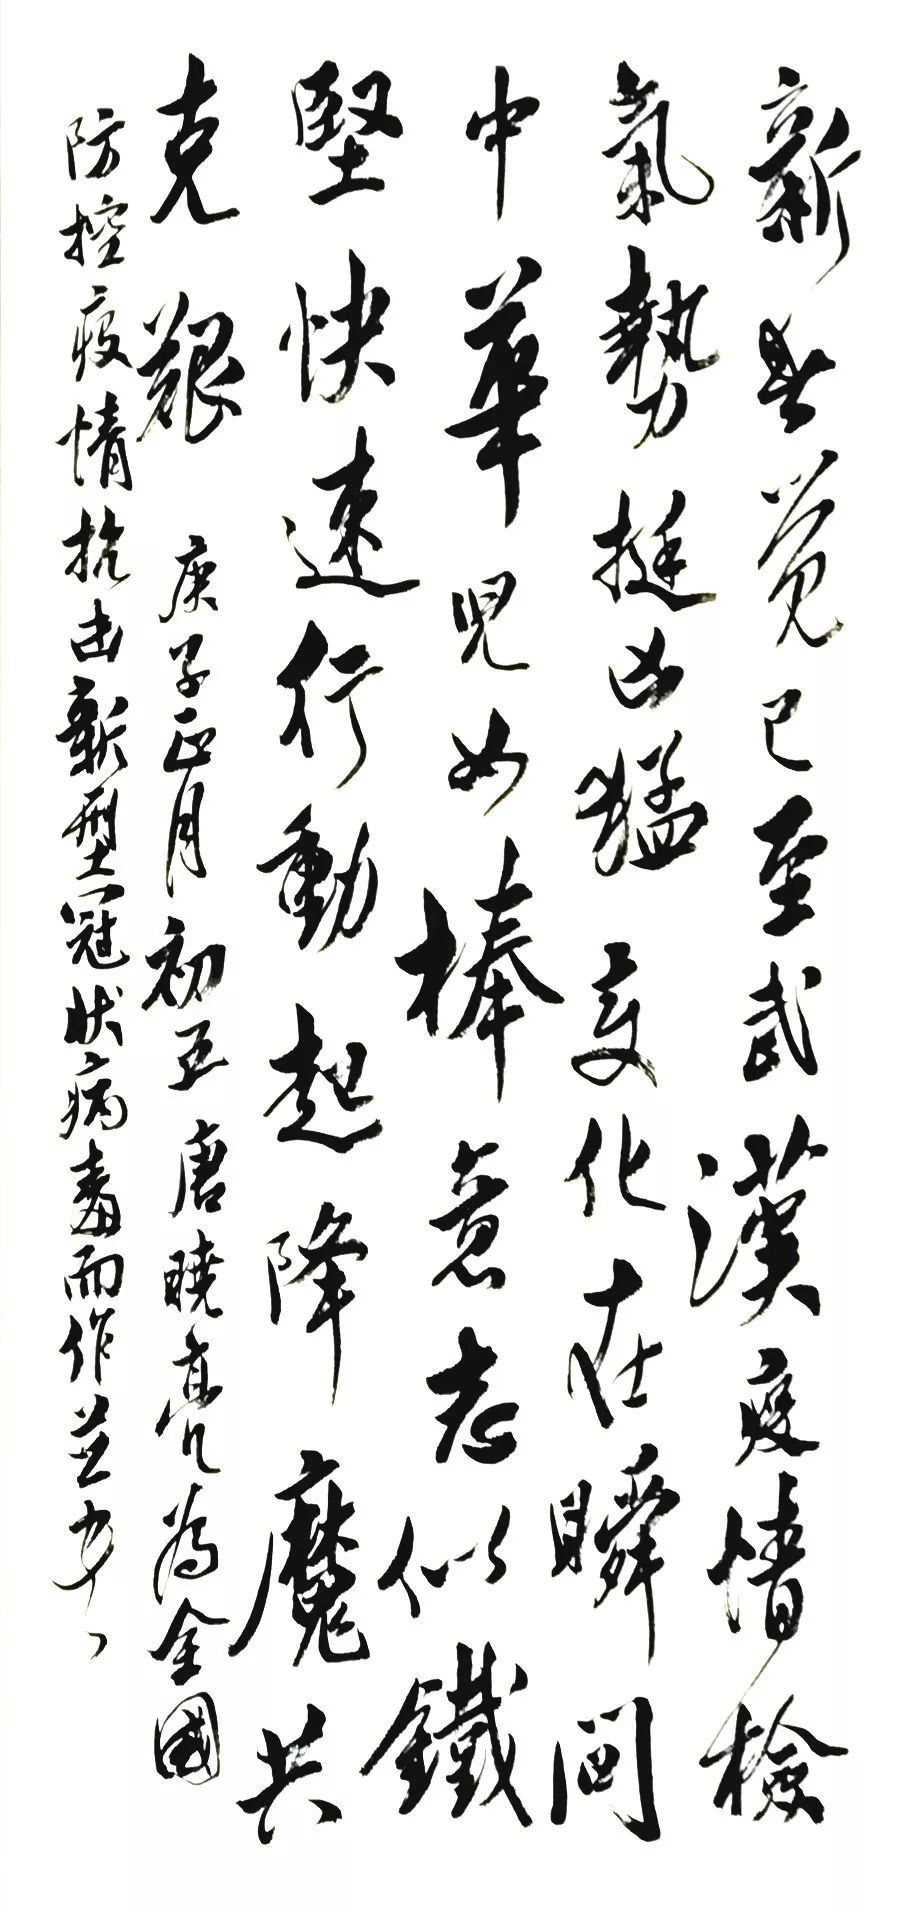 新春觉已至武漢疫情檢
氣勢挺凶猛变化在瞬间
中華児女棒意志似鐵
堅快速行動起降魔共
克艱
庚子正月初五唐曉亮為全國
防控疫情抗击新型冠状病毒而作並书